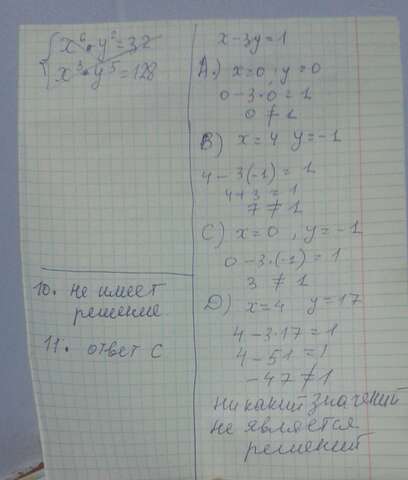 x⁶·y²=32
x³·y⁵=128
10. не имеет
решение.
11. ответ С
x-3y=1
A.) x=0 y=0
0-3·0=1
0≠1
B) x=4 y=-1
4-3(-1)=1
4+3=1
7≠1
C) x=0, y=-1
0-3·(-1)=1
3≠1
D) x=4 y=17
4-3·17=1
4-51=1
-47≠1
никакий значений
не является
решений